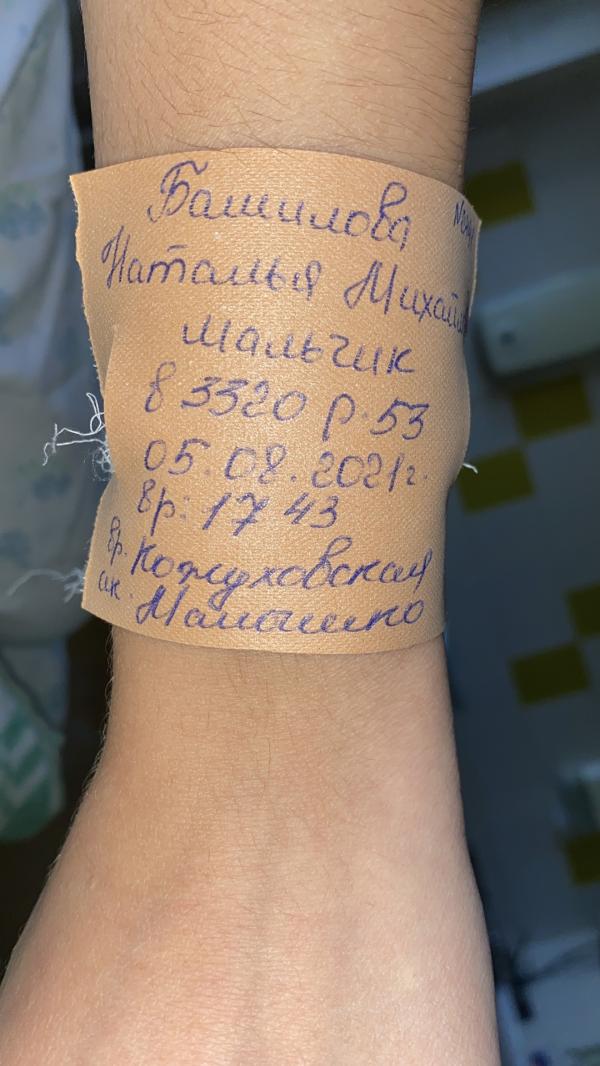 Башилова
Наталья
мальчик
8 3320 р. 53
05.08.2021г.
вр: 17 43
вр. Кожуховская
ак. Малышко